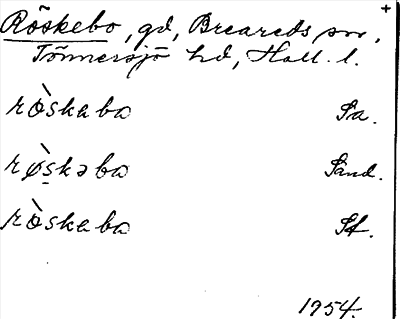 Röskebo, gd, Breareds sn,
Tönnersjö hd, Hall. l.
rò̀skabo Sa.
rø̀skəbo Sand.
rò̀skabo St.
1954.